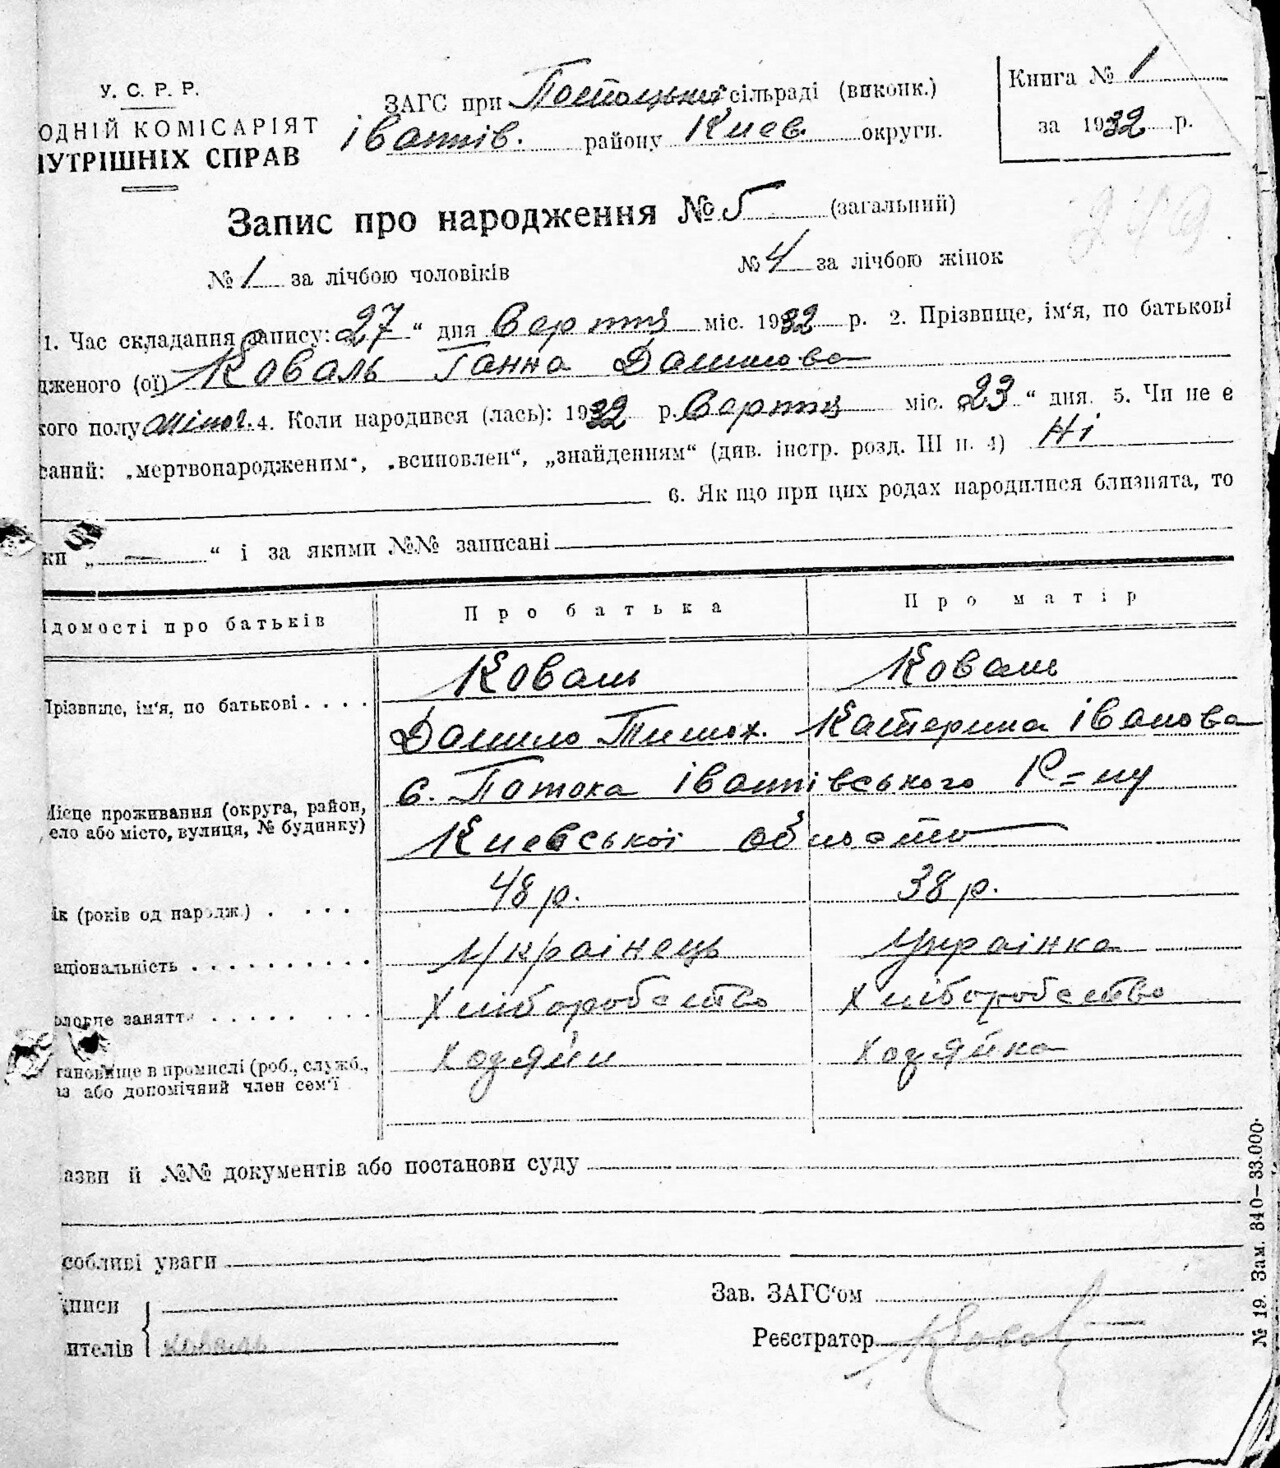 У. С. Р. Р.
ОДНІЙ КОМІСАРІЯТ
НУТРІШНІХ СПРАВ
ЗАГС при сільраді (виконк.)
Іванків. району Киев. округи.
Книга № 1
за 1932 р.
Запис про народження № 5 (загальний)
№ 1 за лічбою чоловіків № 4 за лічбою жінок
249
1. Час складання запису: 27 “ дня міс. 1932 р. 2. Прізвище, ім‘я, по батькові
дженого (ої) Коваль Ганна Данилова
кого полу жіноч. 4. Коли народився (лась): 1932 р. міс. 23 “ дня. 5. Чи не є
саний: „мертвонародженим“, „всиновлен“, „знайденням“ (див. інстр. розд. III п. 4) Ні
6. Якщо при цих родах народилися близнята, то
ки „ — “ і за якими №№ записані
ідомості про батьків Про батька Про матір
Прізвище, ім‘я, по батькові . . . . Коваль Коваль
Данило Тимох. Катерина Іванова
Місце проживання (округа, район, с. Потока Іванківського Р=ну
село або місто, вулиця, № будинку) Киевської области
ік (років од народж.) . . . . . 48 р. 38 р.
аціональність . . . . . . . . . . Українець Українка
ологве заняття . . . . . . . . Хліборобство Хліборобство
тановище в промислі (роб., служб., Хозяйн Хозяйка
аз або допомічний член сем‘ї
азви й №№ документів або постанови суду
собливі уваги
дписи Зав. ЗАГС‘ом
вителів Коваль Реєстратор
№ 19. Зам. 340—33.000.